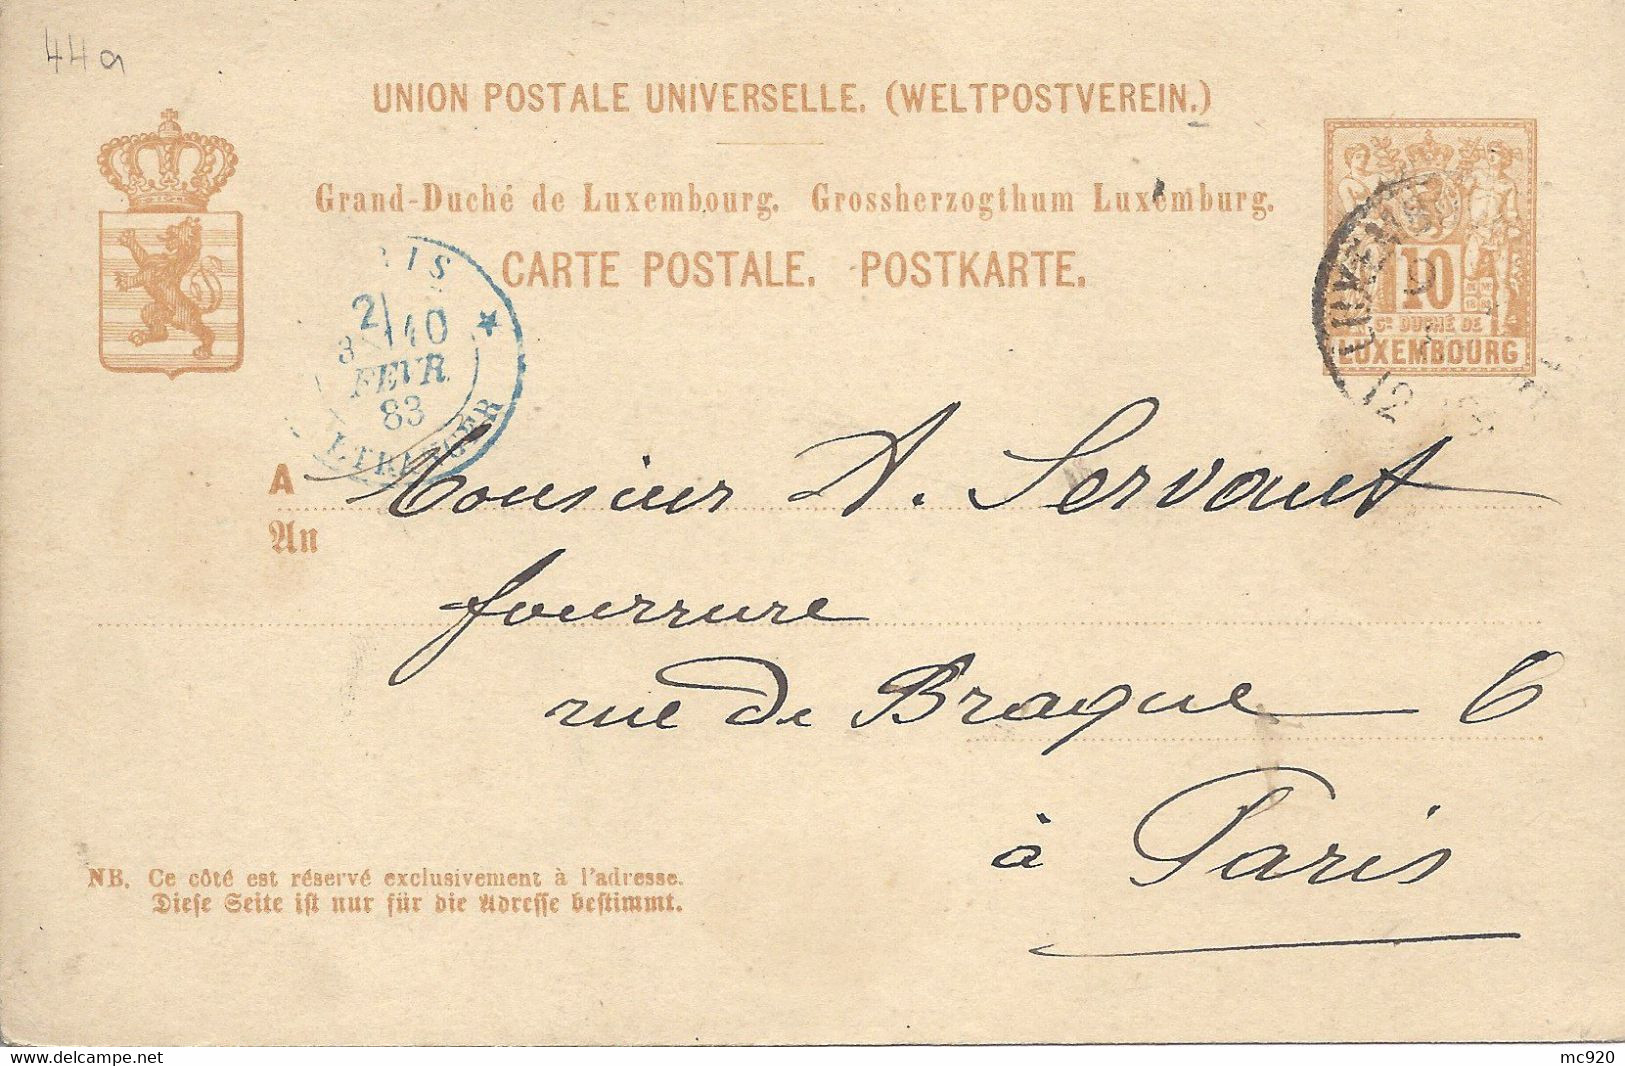 44a
UNION POSTALE UNIVERSELLE. (WELTPOSTVEREIN.)
Grand-Duché de Luxembourg. Grossherzogthum Luxemburg.
CARTE POSTALE. POSTKARTE.
10
Gd DUCHÉ DE
LUXEMBOURG
2/ 10
FEVR.
83
ETRANGER
12
A Monsieur A. Servant
An
fourrure
rue de Braque 6
à Paris
NB. Ce côté est réservé exclusivement à l'adresse.
Diese Seite ist nur für die Adresse bestimmt.
www.delcampe.net
mc920